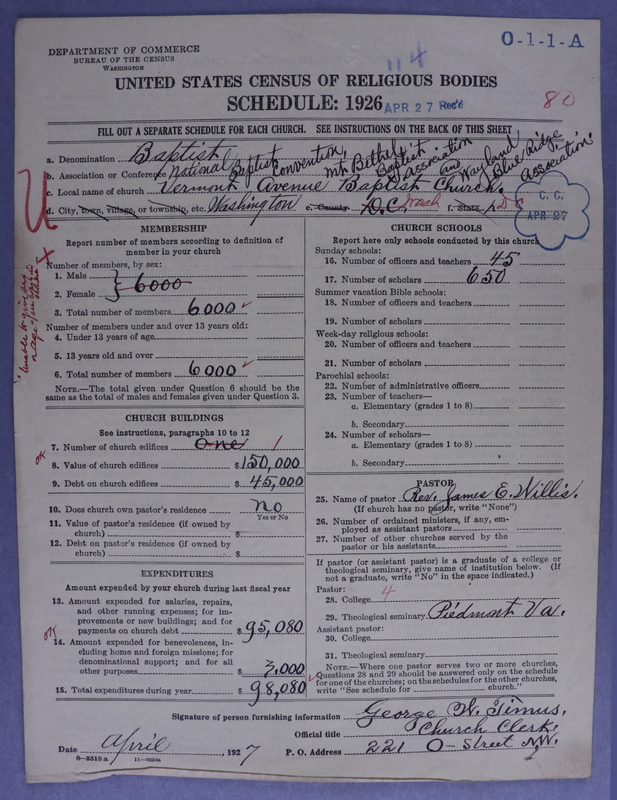 DEPARTMENT OF COMMERCE
BUREAU OF THE CENSUS
WASHINGTON
114
O-1-1-A
UNITED STATES CENSUS OF RELIGIOUS BODIES
SCHEDULE: 1926
APR 27 Rec'd
80
FILL OUT A SEPARATE SCHEDULE FOR EACH CHURCH. SEE INSTRUCTIONS ON THE BACK OF THIS SHEET
a. Denomination Baptist
b. Association or Conference National Baptist Convention, Mt. Bethel Baptist Association and Wayland Blue Ridge Association.
c. Local name of church Vermont Avenue Baptist Church.
d. City, town, village, or township, etc. Washington e. County D.C. Wash f. State D.C.
C. C.
APR 27
MEMBERSHIP
Report number of members according to definition of
member in your church
Number of members, by sex:
1. Male
2. Female
6000
3. Total number of members 6000
Number of members under and over 13 years old:
4. Under 13 years of age
5. 13 years old and over
6. Total number of members 6000
NOTE.—The total given under Question 6 should be the
same as the total of males and females given under Question 3.
CHURCH BUILDINGS
See instructions, paragraphs 10 to 12
OK
7. Number of church edifices One 1
8. Value of church edifices $150,000
9. Debt on church edifices $45,000
10. Does church own pastor's residence No
Yes or No
11. Value of pastor's residence (if owned by
church) $
12. Debt on pastor's residence (if owned by
church) $
EXPENDITURES
Amount expended by your church during last fiscal year
13. Amount expended for salaries, repairs,
and other running expenses; for im-
provements or new buildings; and for
payments on church debt $95,080
OK
14. Amount expended for benevolences, in-
cluding home and foreign missions; for
denominational support; and for all
other purposes $3,000
15. Total expenditures during year $98,080
CHURCH SCHOOLS
Report here only schools conducted by this church
Sunday schools:
16. Number of officers and teachers 45
17. Number of scholars 650
Summer vacation Bible schools:
18. Number of officers and teachers
19. Number of scholars
Week-day religious schools:
20. Number of officers and teachers
21. Number of scholars
Parochial schools:
22. Number of administrative officers
23. Number of teachers—
a. Elementary (grades 1 to 8)
b. Secondary
24. Number of scholars—
a. Elementary (grades 1 to 8)
b. Secondary
PASTOR
25. Name of pastor Rev. James E. Willis.
(If church has no pastor, write "None")
26. Number of ordained ministers, if any, em-
ployed as assistant pastors
27. Number of other churches served by the
pastor or his assistants
If pastor (or assistant pastor) is a graduate of a college or
theological seminary, give name of institution below. (If
not a graduate, write "No" in the space indicated.)
Pastor:
28. College 4
29. Theological seminary Piedmont Va.
Assistant pastor:
30. College
31. Theological seminary
NOTE.—Where one pastor serves two or more churches,
Questions 28 and 29 should be answered only on the schedule
for one of the churches; on the schedules for the other churches,
write "See schedule for church."
Signature of person furnishing information George W. Timus.
Official title Church Clerk.
Date April 1927 P. O. Address 221 O-Street N.W.
8-5515a 11-9254a